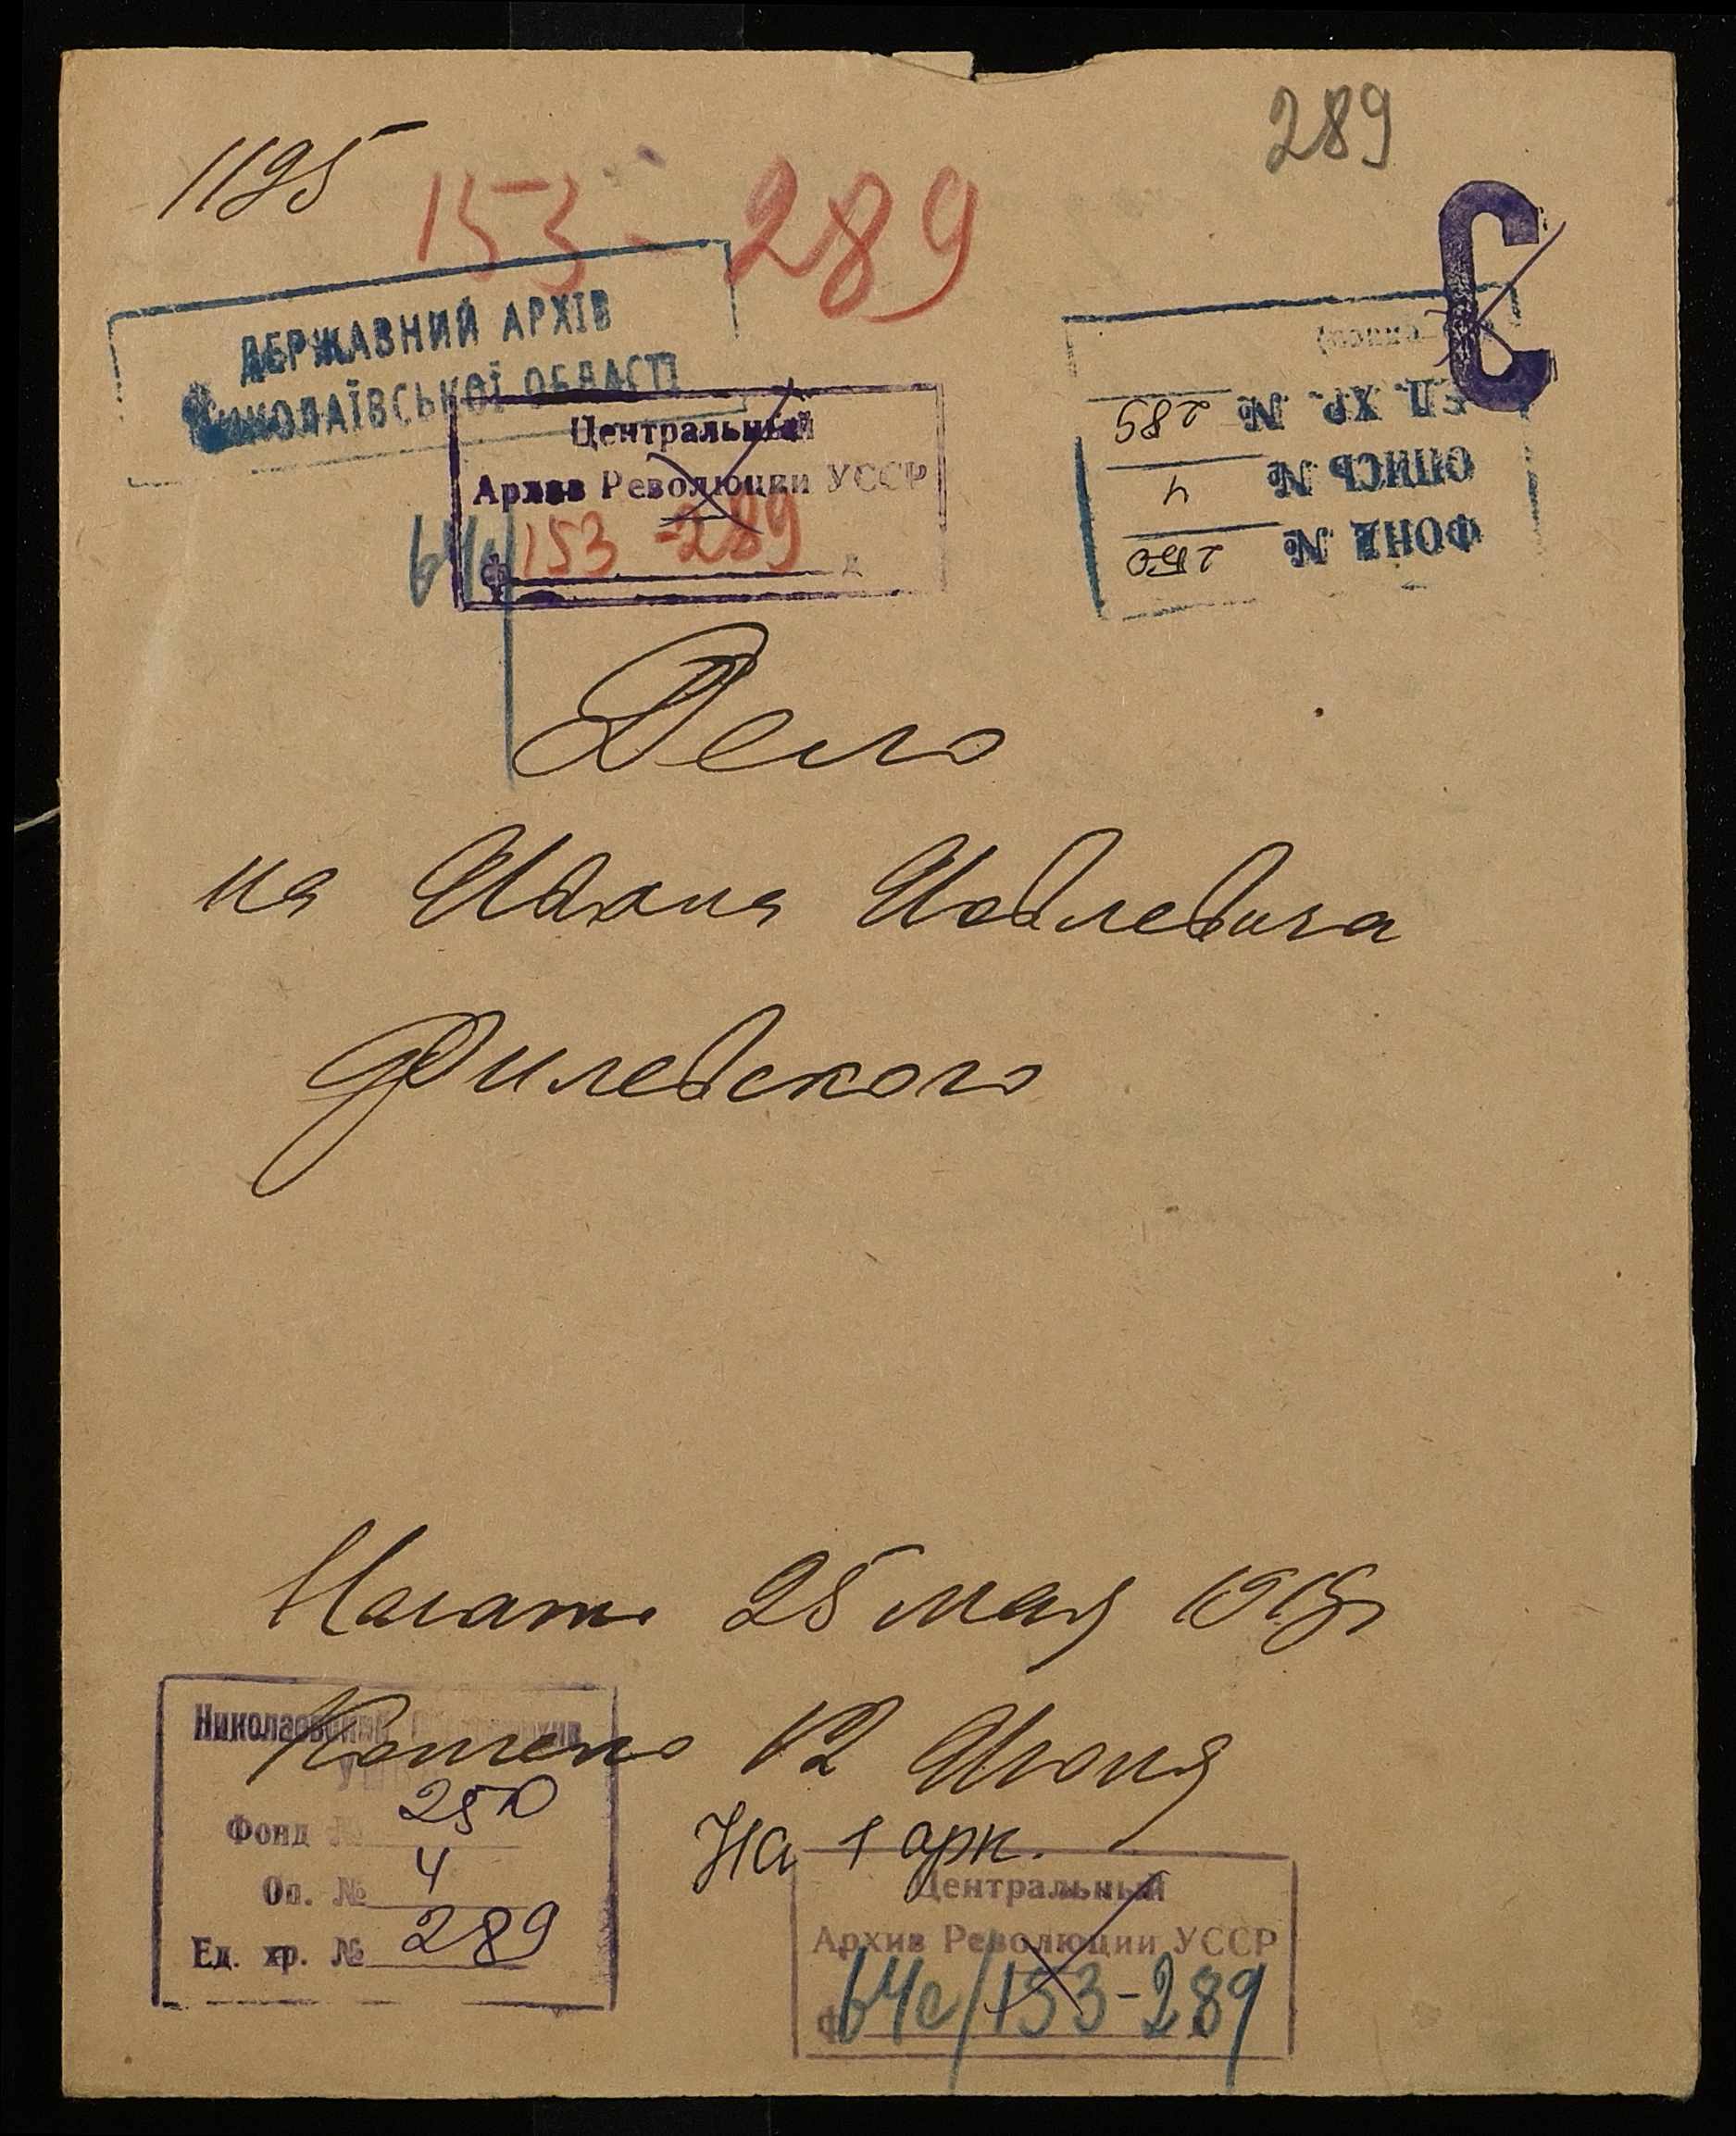 289
1195
153-289
С
ДЕРЖАВНИЙ АРХІВ
МИКОЛАЇВСЬКОЇ ОБЛАСТІ
ФОНД № 250
ОПИСЬ № 4
ЕД. ХР. № 289
Центральный
Архив Революции УССР
64с/153-289
Дело
на Ивана Иовлевича
Филевского
Начато 25 мая
Кончено 12 Июня
На 1 арк.
Николаевский
Фонд № 250
Оп. № 4
Ед. хр. № 289
Центральный
Архив Революции УССР
ф 64с/153-289